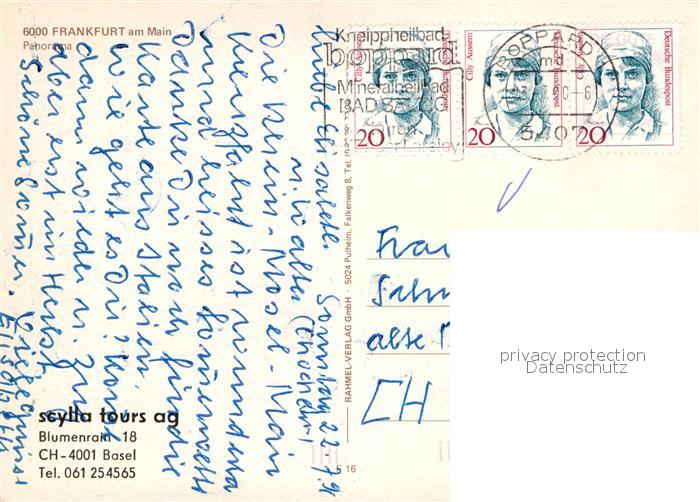 6000 FRANKFURT am Main
Panorama
Kneippheilbad
boppard
Mineralheilbad
BAD SALZIG
BOPPARD
md
5407
Cilly Aussem
Deutsche Bundespost
20
Cilly Aussem
Deutsche Bundespost
20
Cilly Aussem
Deutsche Bundespost
20
Liebe Elisabeth Sonntag 22.7.9
u. Walter
Die Rhein-Mosel-Main
Kreuzfahrt ist wunderba
und heisses Sommerwette
Danke Dir noch für die
Karte aus Italien.
Wie geht es Dir?
dann wieder n. Zu
aber erst im Herbst
Schöne
Liebe Grüsse
Elisabeth
RAHMEL-VERLAG GmbH · 5024 Pulheim, Falkenweg 8, Tel.
5 16
Frau
alte
CH
scylla tours ag
Blumenrain 18
CH-4001 Basel
Tel. 061 254565
privacy protection
Datenschutz